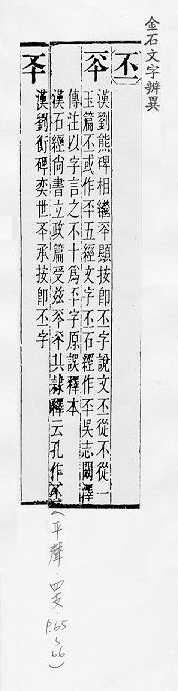 金石文字辨異
丕
㔻
漢劉熊碑相繼㔻顯按即丕字說文丕從不從一
玉篇丕或作㔻五經文字丕石經作㔻吳志闞澤
傳注以字言之不十爲㔻字原誤釋本
漢石經尚書立政篇受茲㔻㔻其隸釋云孔作丕
㔻
漢劉衡碑奕世㔻承按即丕字
(平聲.四支.P.65~66)